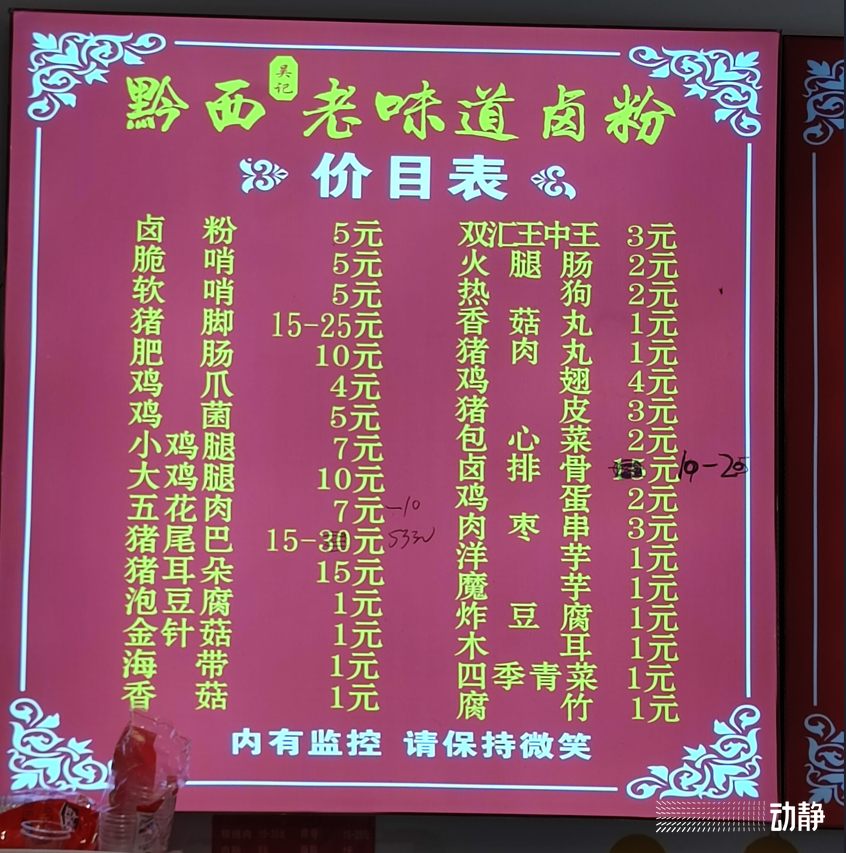 黔西 吴记 老味道卤粉
价目表
卤粉 5元
脆哨 5元
软哨 5元
猪脚 15-25元
肥肠 10元
鸡爪 4元
鸡菌 5元
小鸡腿 7元
大鸡腿 10元
五花肉 7元 -10
猪尾巴 15-30元
猪耳朵 15元
泡豆腐 1元
金针菇 1元
海带 1元
香菇 1元
双汇王中王 3元
火腿肠 2元
热狗 2元
香菇丸 1元
猪肉丸 1元
鸡翅 4元
猪皮 3元
包心菜 2元
卤排骨 元 10-20
鸡蛋 2元
肉枣串 3元
洋芋 1元
魔芋 1元
炸豆腐 1元
木耳 1元
四季青菜 1元
腐竹 1元
内有监控 请保持微笑
动静